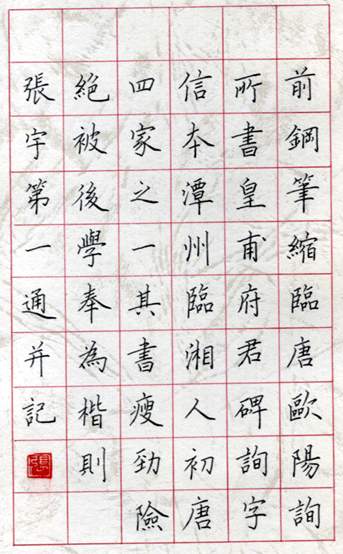 前鋼筆縮臨唐歐陽詢
所書皇甫府君碑詢字
信本潭州臨湘人初唐
四家之一其書瘦勁險
絕被後學奉為楷則
張宇第一通并記